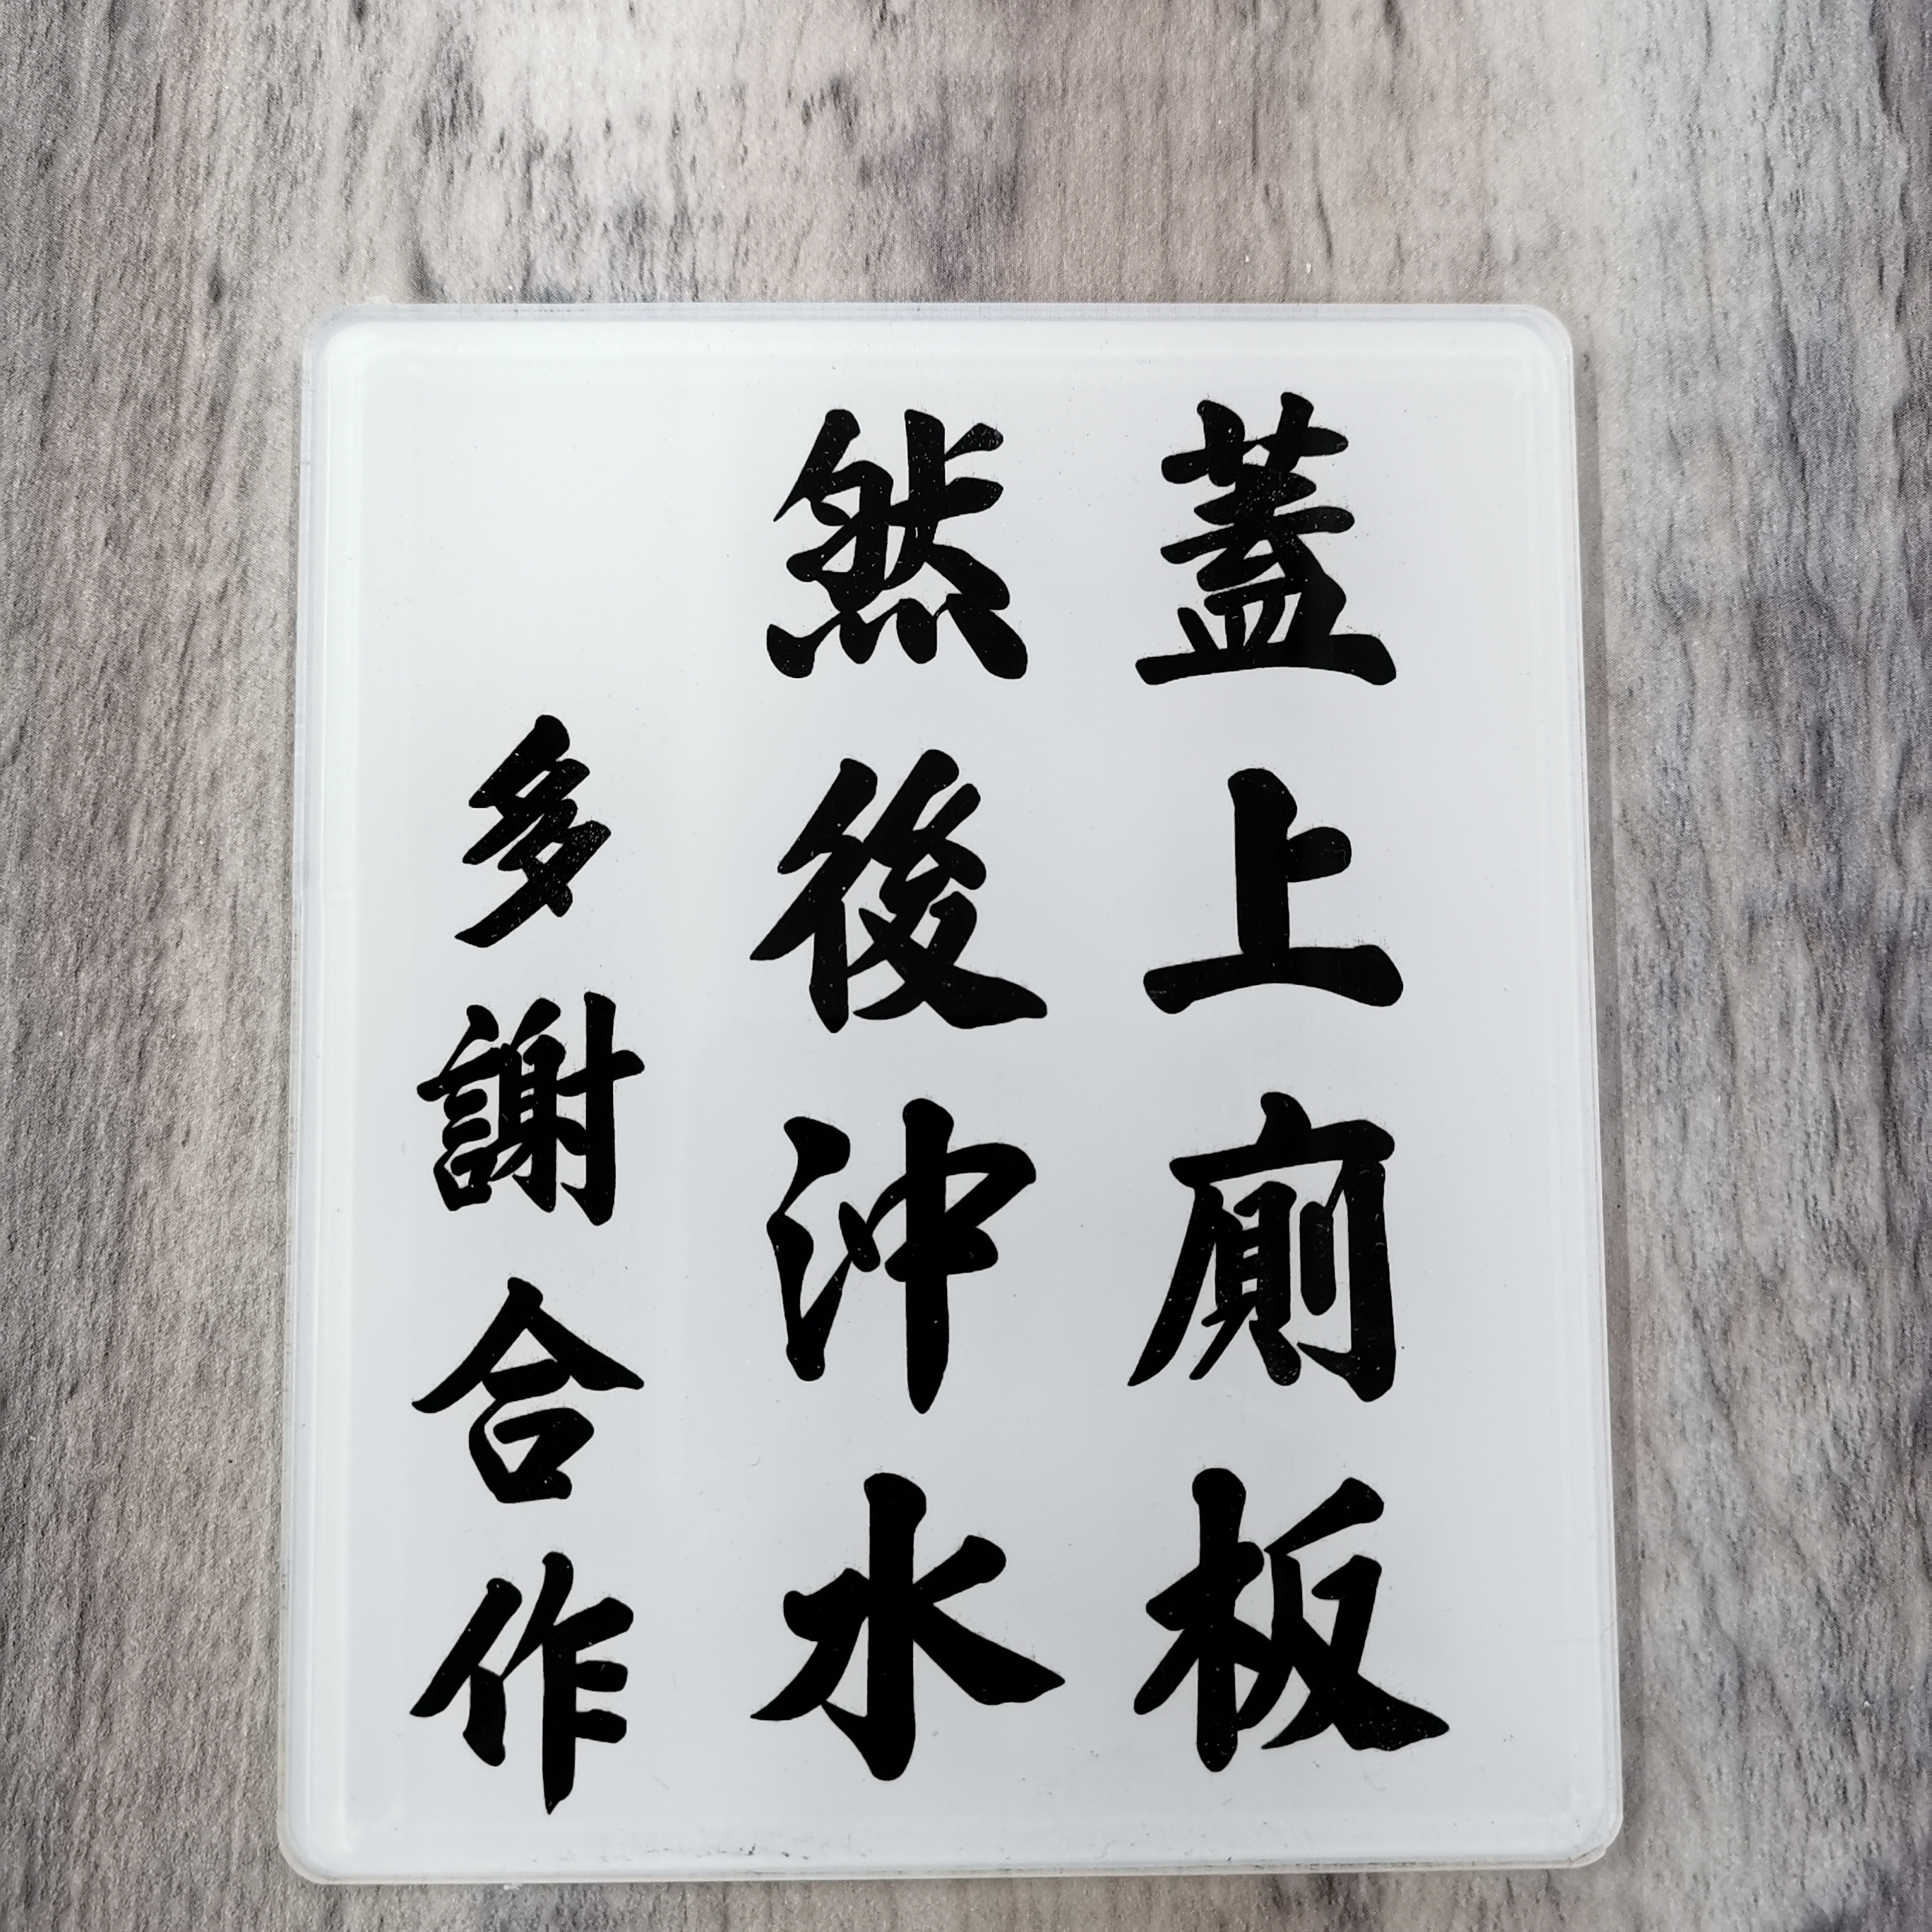 蓋上廁板
然後沖水
多謝合作